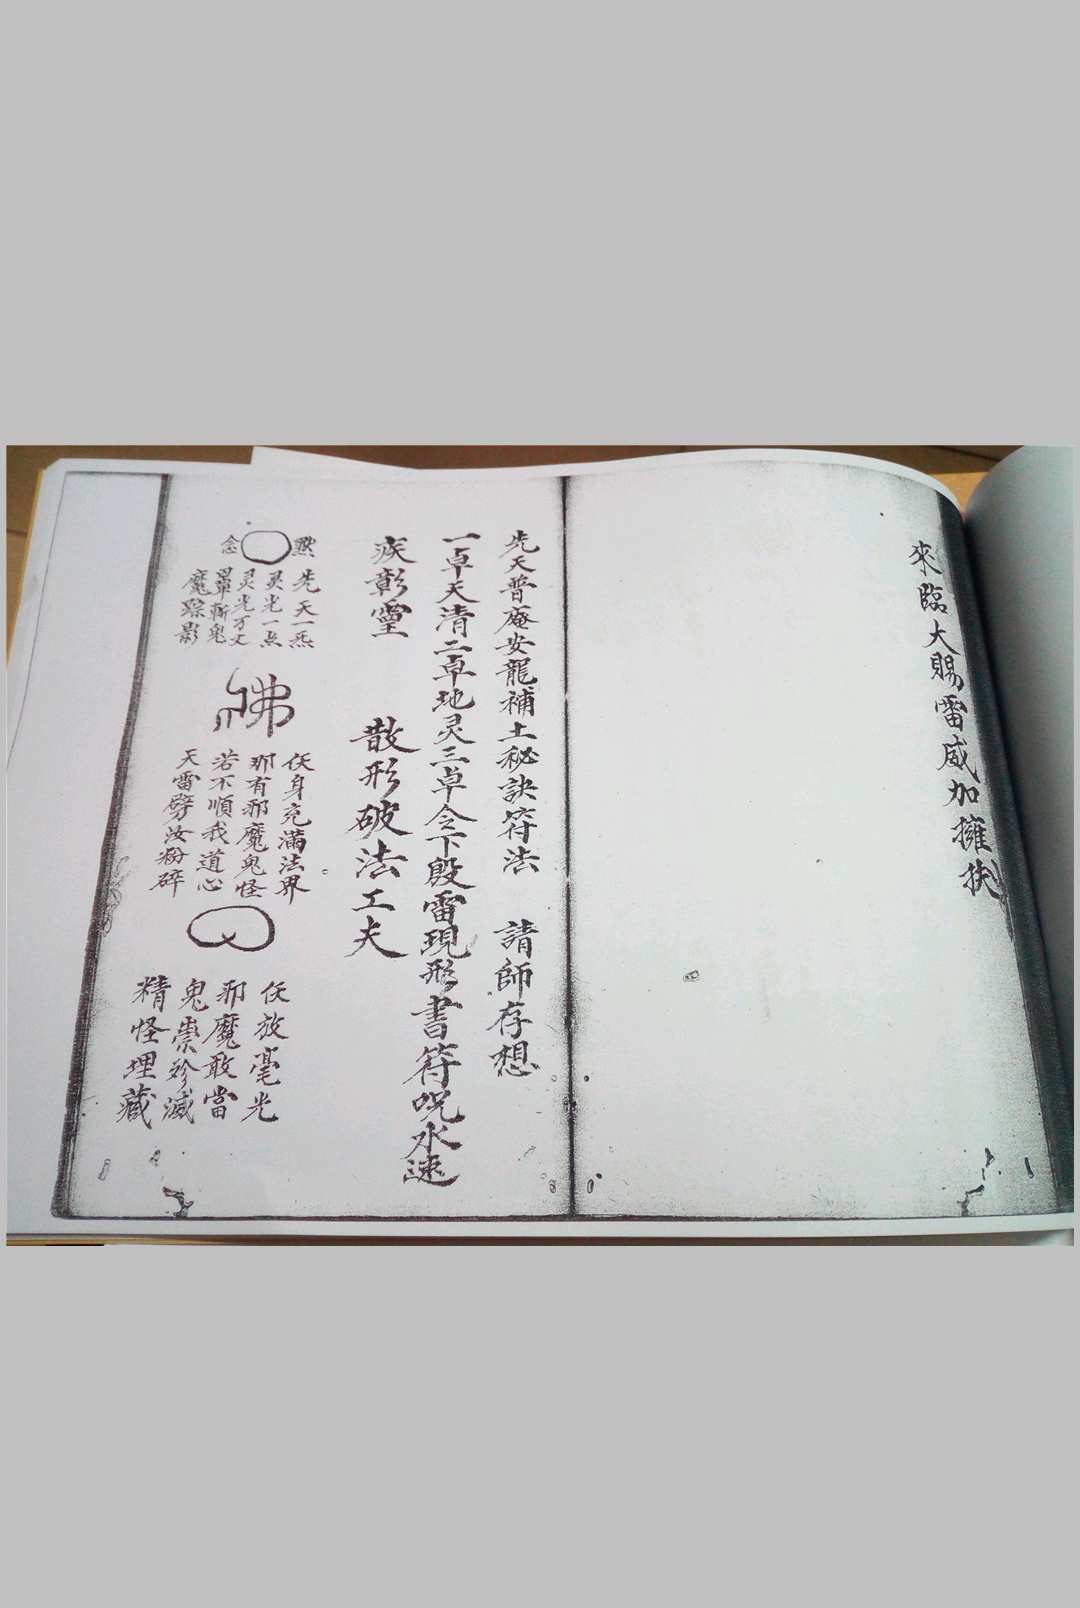 來臨大賜雷威加擁扶
先天普庵安龍補土秘訣符法　請師存想
一卓天清二卓地灵三卓令下殷雷現形書符咒水速
疾彰靈　散形破法工夫
黙念
先天一炁
灵光一点
灵光万丈
罩斬鬼
魔踪影
仸身充滿法界
那有邪魔鬼怪
若不順我道心
天雷劈汝粉碎
仸放毫光
邪魔敢當
鬼祟殄滅
精怪埋藏